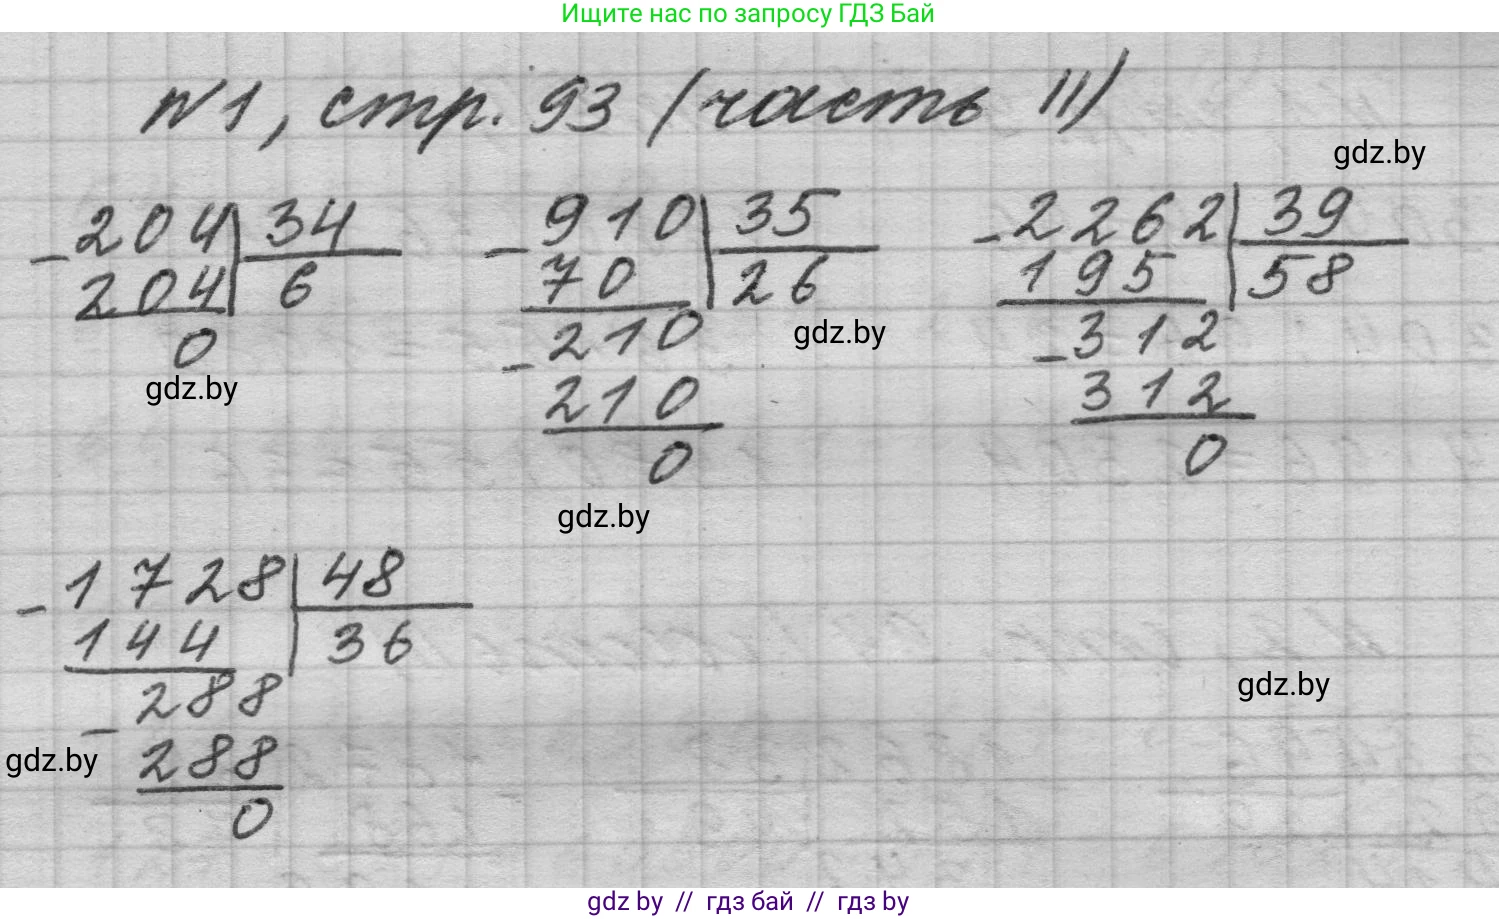 Ищите нас по запросу ГДЗ Бай
№1, стр. 93 (часть II)
gdz.by
- 204 | 34
204 | 6
0
gdz.by
- 910 | 35
70 | 26
- 210
210
0
gdz.by
gdz.by
- 2262 | 39
195 | 58
- 312
312
0
- 1728 | 48
144 | 36
- 288
288
0
gdz.by
gdz.by
gdz by // гдз бай // гдз by